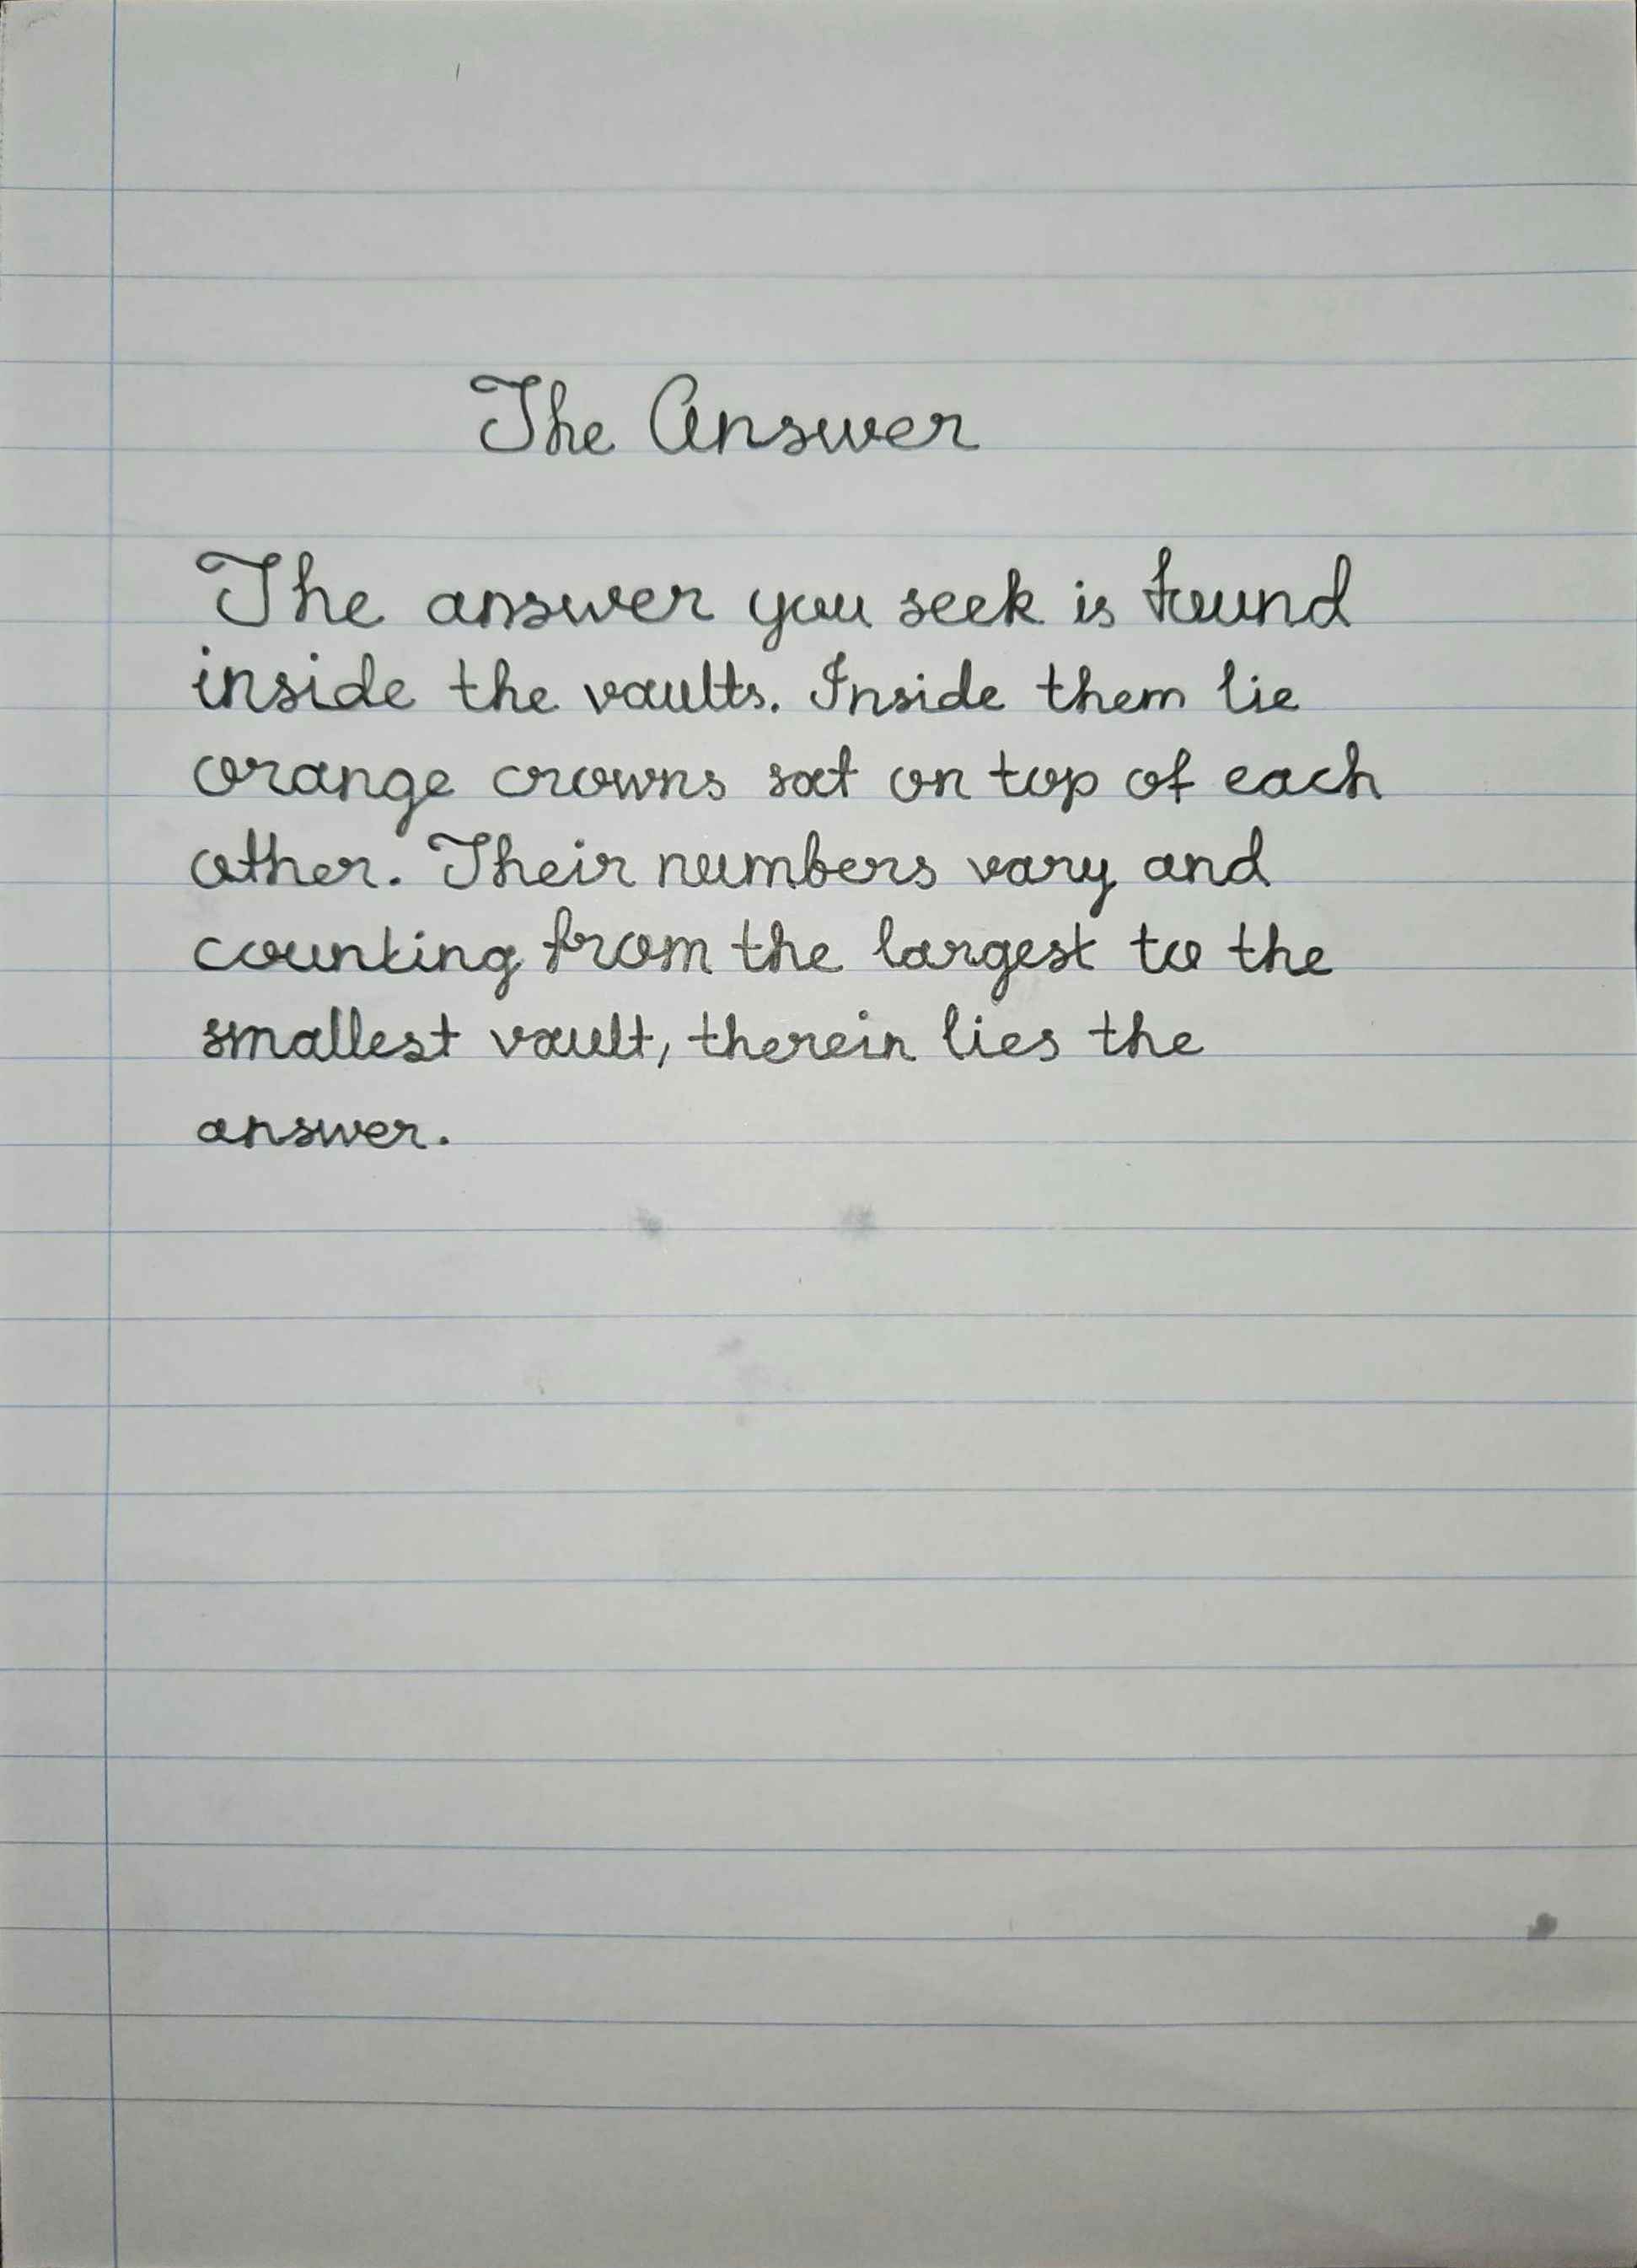 The Answer
The answer you seek is found
inside the vaults. Inside them lie
orange crowns sat on top of each
other. Their numbers vary and
counting from the largest to the
smallest vault, therein lies the
answer.